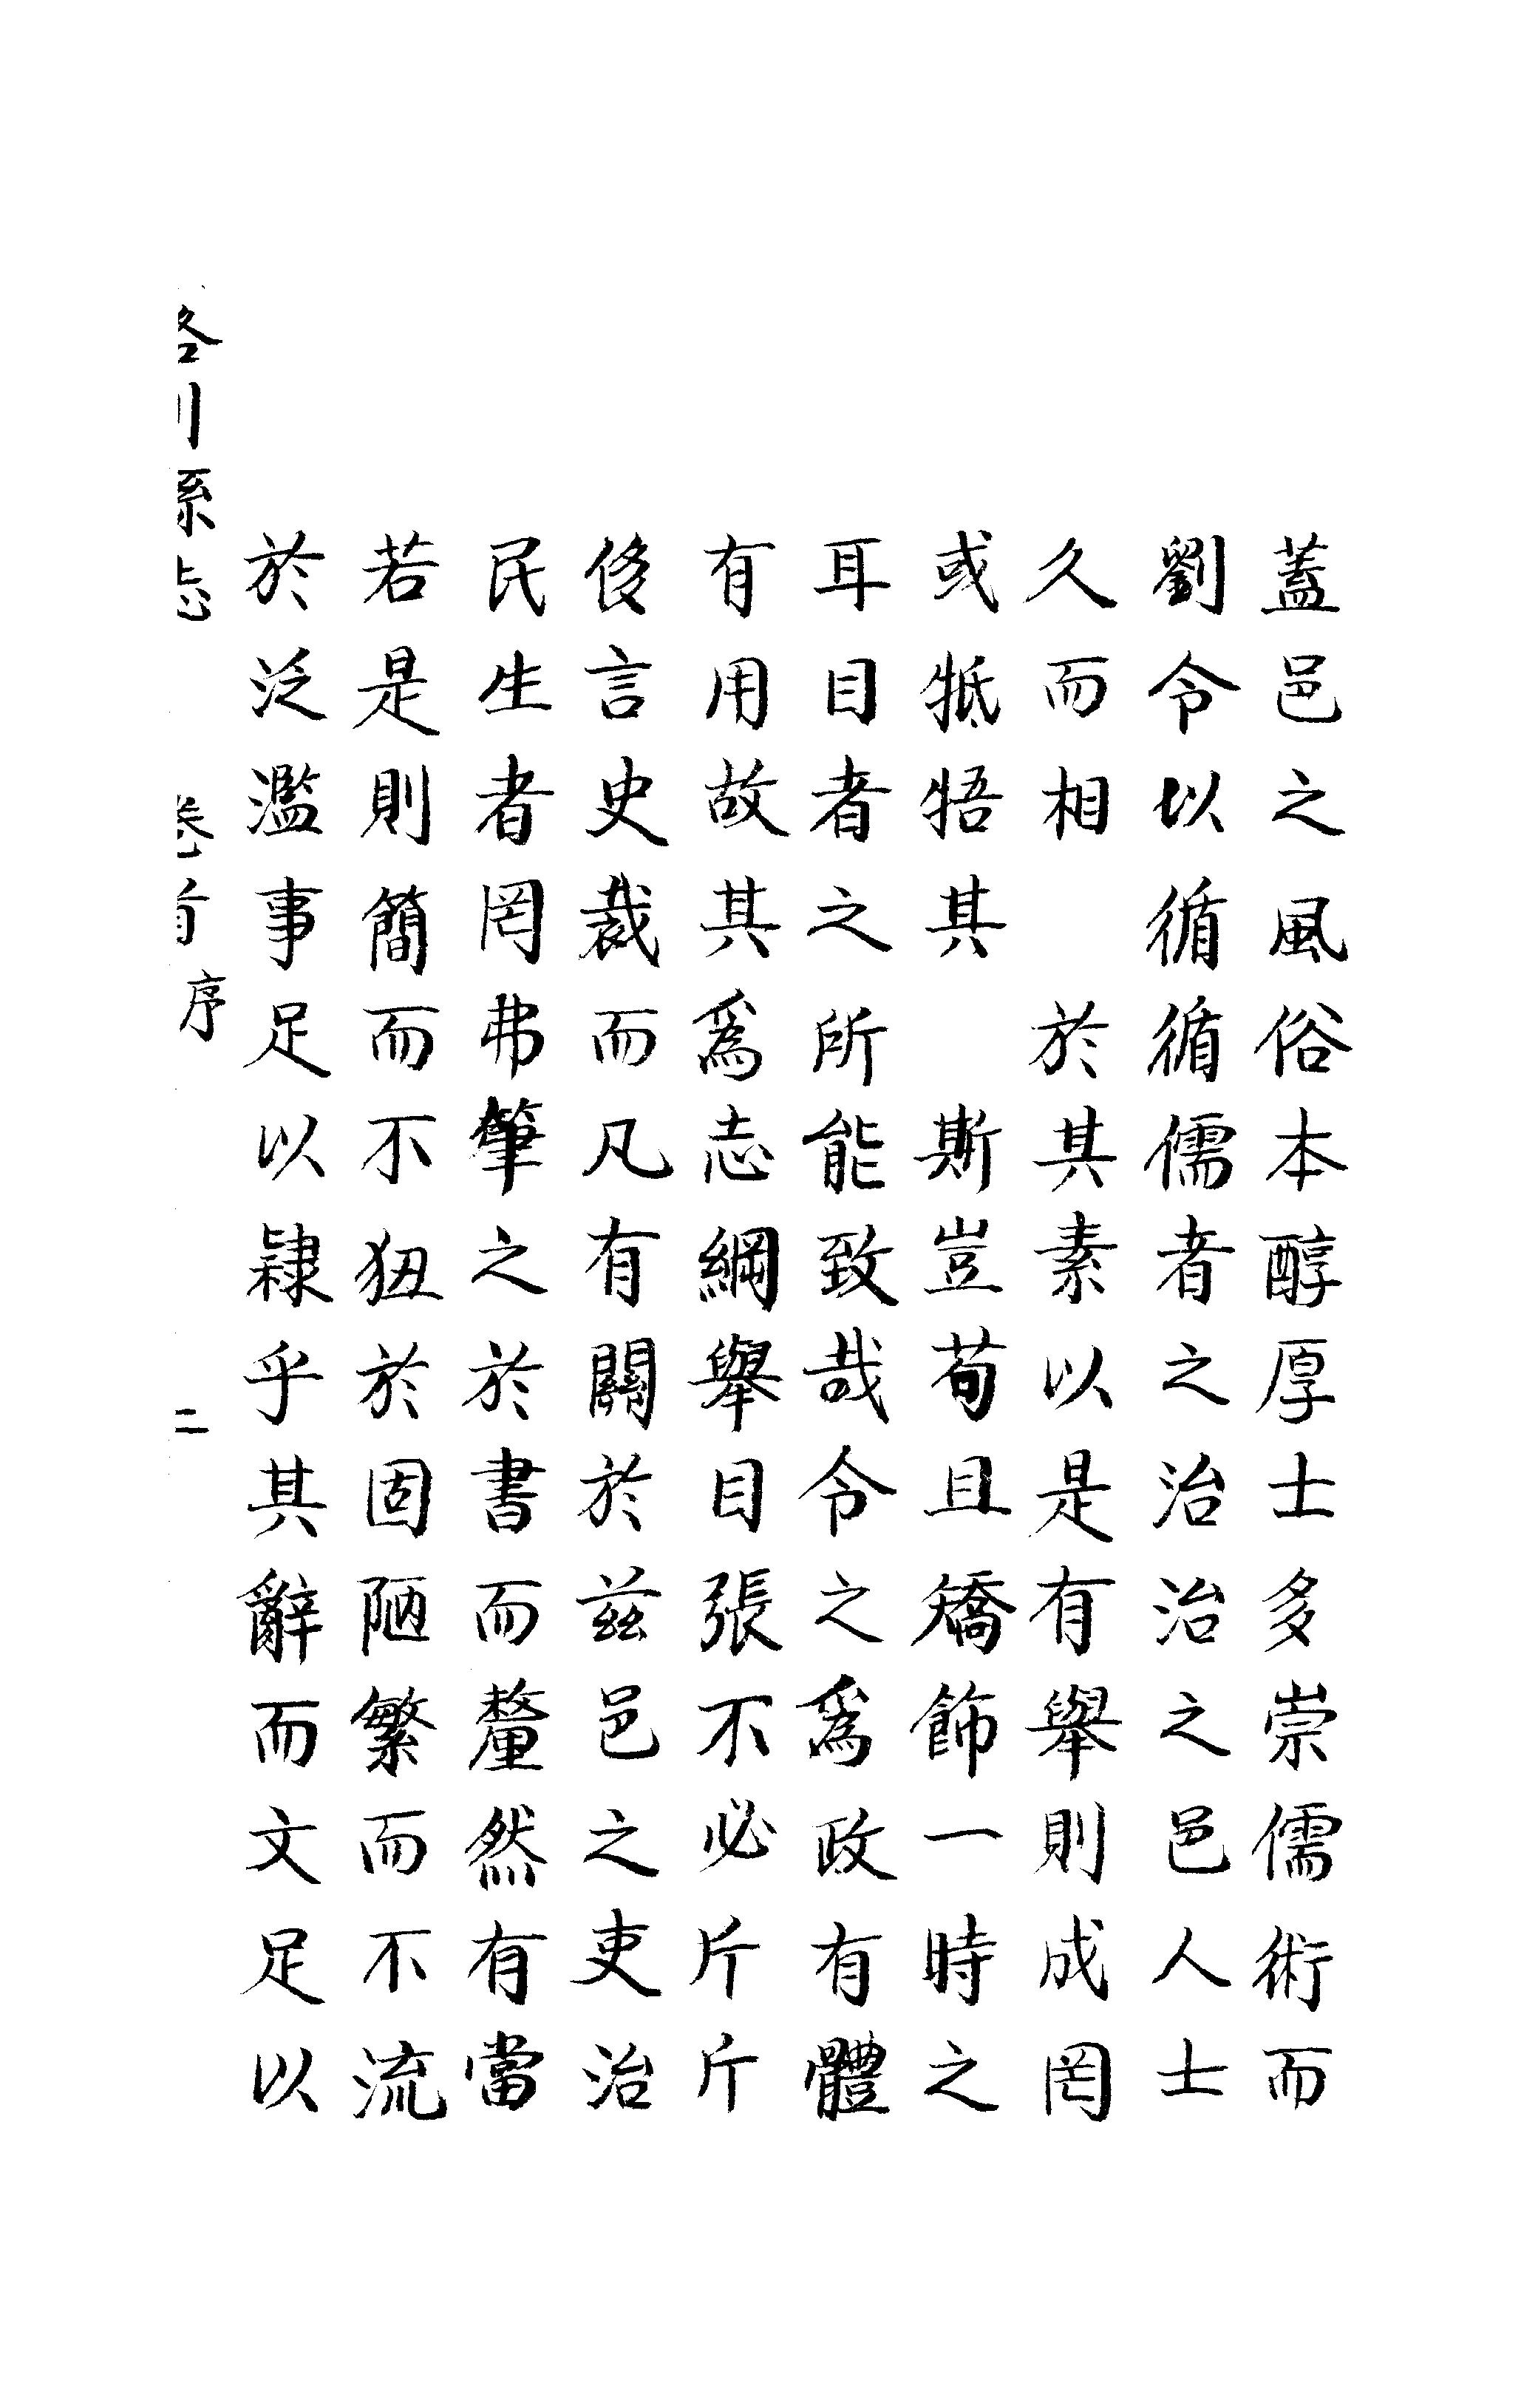 蓋邑之風俗本醇厚士多崇儒術而
劉令以循循儒者之治治之邑人士
久而相 於其素以是有舉則成罔
或牴牾其 斯豈苟且矯飾一時之
耳目者之所能致哉令之爲政有體
有用故其爲志綱舉目張不必斤斤
侈言史裁而凡有關於茲邑之吏治
民生者罔弗肇之於書而釐然有當
若是則簡而不狃於固陋繁而不流
於泛濫事足以隸乎其辭而文足以
洛川縣志 卷首 序 二